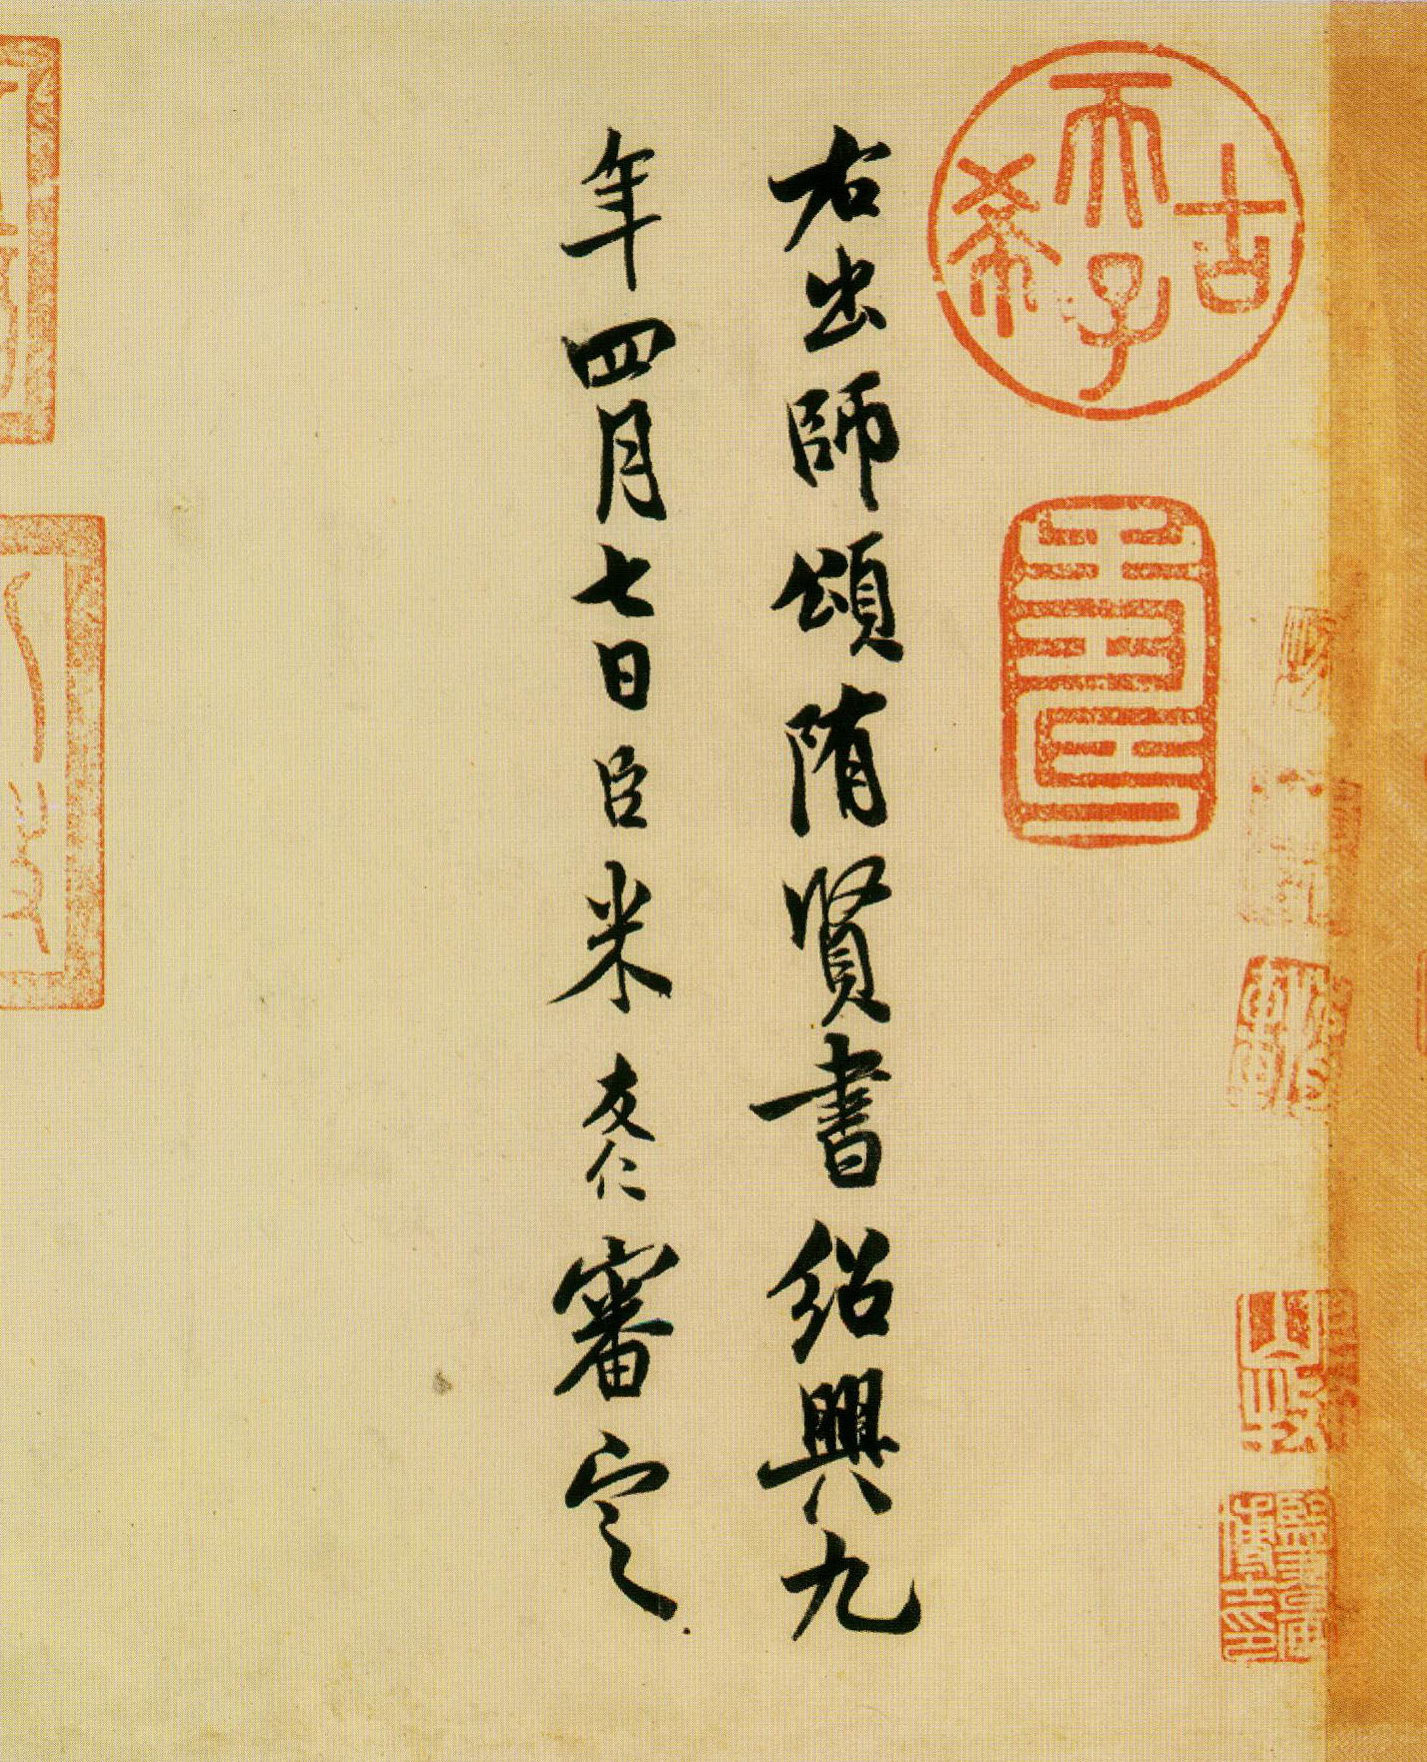 右出師頌隋賢書紹興九
年四月七日臣米友仁審定
古
天子
希
壽